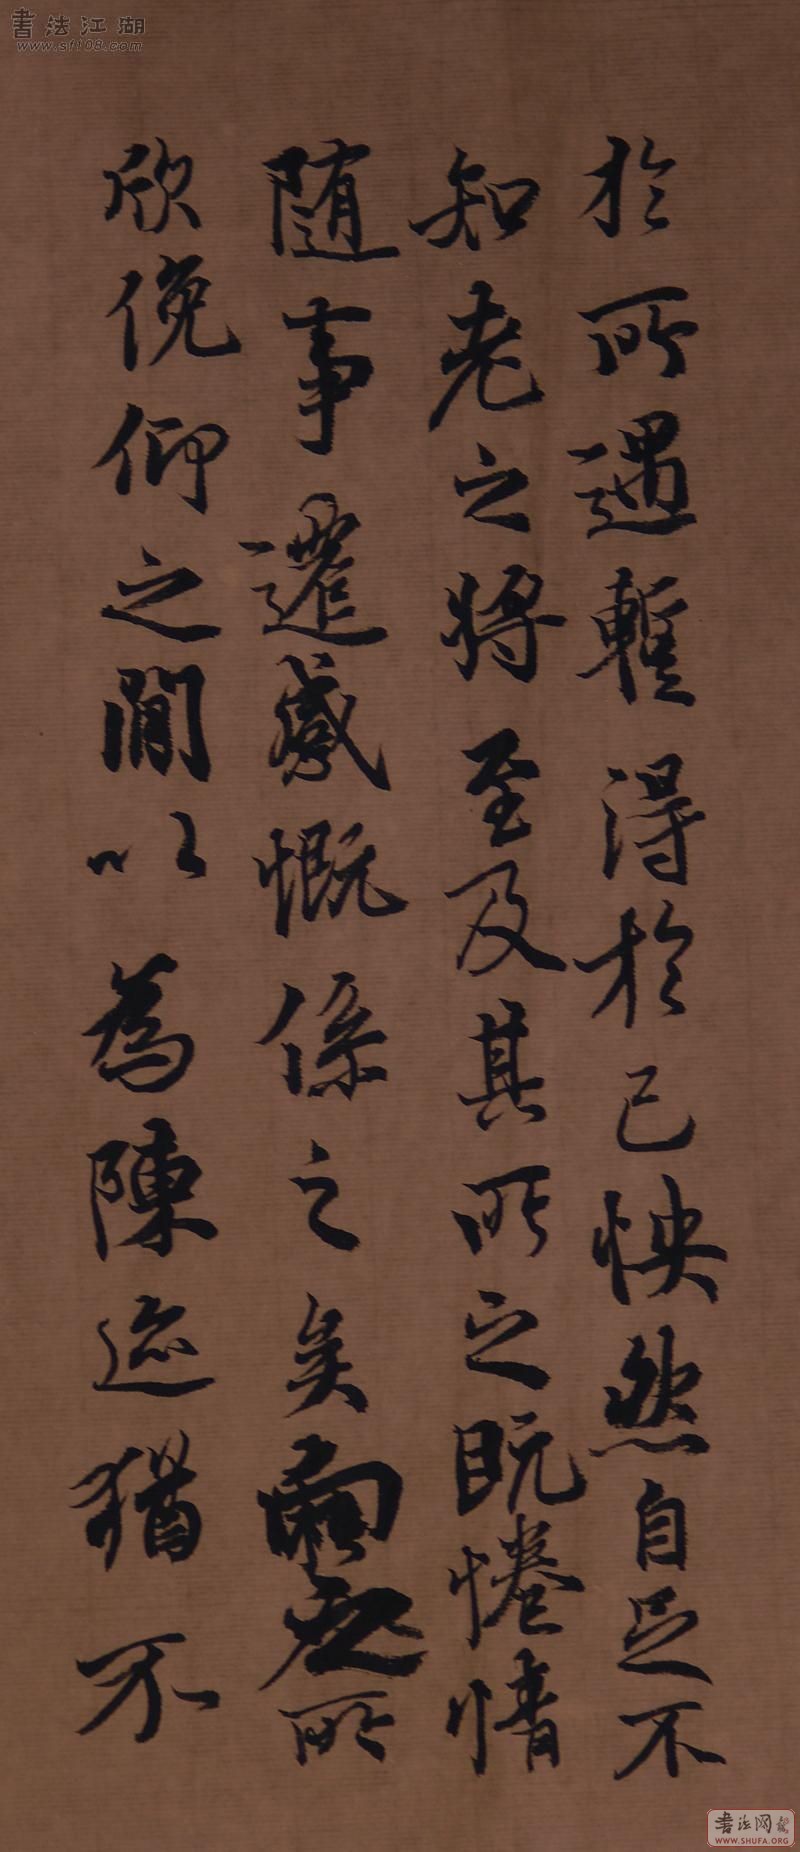 書法江湖
www.sf108.com
於所遇暫得於己怏然自足不
知老之將至及其所之既惓情
隨事遷感慨係之矣向之所
欣俛仰之閒以為陳迹猶不
書法网
WWW.SHUFA.ORG